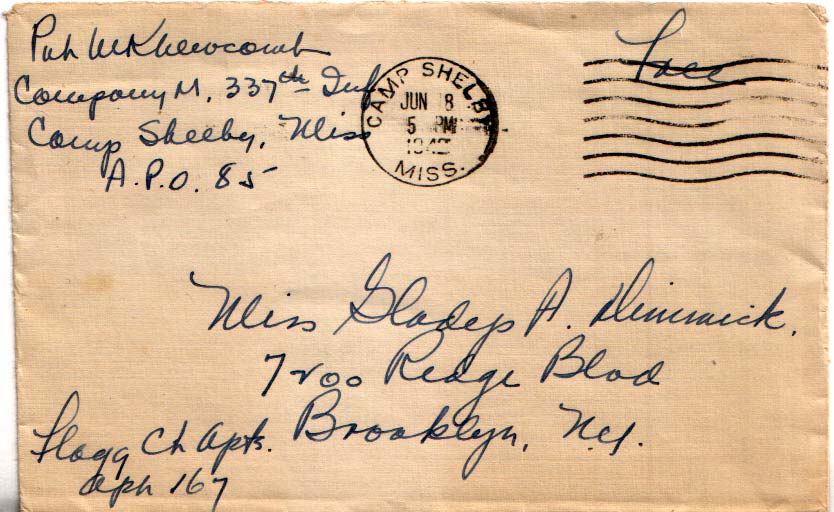 Pvt W K Newcomb
Company M, 337th Inf
Camp Shelby, Miss
A.P.O. 85
CAMP SHELBY
JUN 8
5 PM
1942
MISS.
Free
Miss Gladys A. Dimmick.
7200 Ridge Blvd
Brooklyn, N.Y.
Flagg Ct Apts.
Apt 167